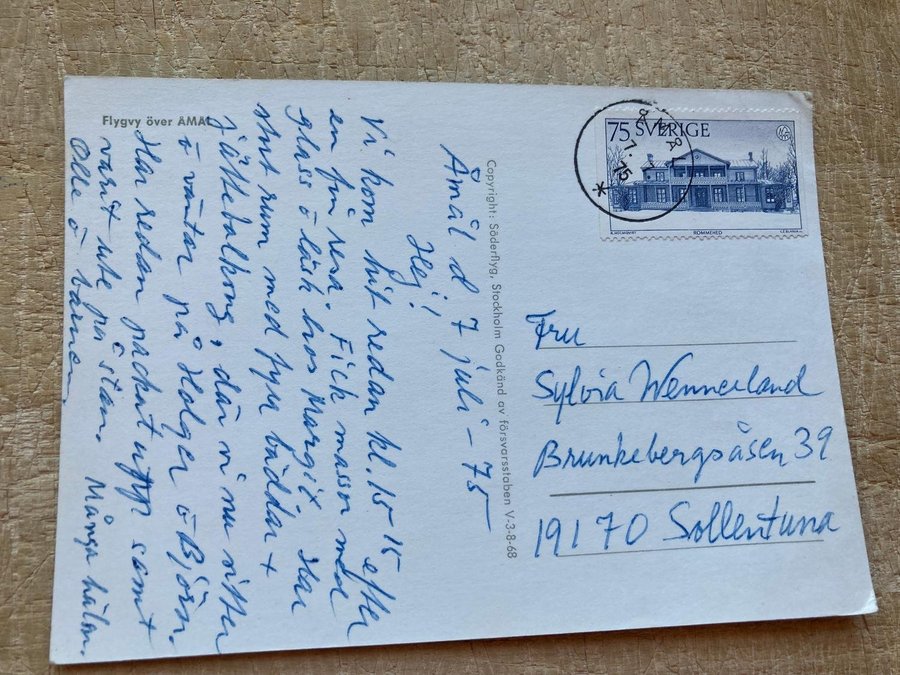 Flygvy över ÅMÅL
Åmål d 7 juli -75
Hej!
Vi kom hit redan kl. 15 15 efter
en fin resa. Fick massor med
glass o läsk hos Margit. Har
stort rum med fyra bäddar +
jättebalkong, där vi nu sitter
o väntar på Holger o Björn.
Har redan packat upp samt
varit ute på stan. Många häls.
Olle o barnen
Copyright: Söderflyg, Stockholm Godkänd av försvarsstaben V-3-8-68
ÅMÅL
7. 75
75 SVERIGE
ROMMEHED
Fru
Sylvia Wennerland
Brunkebergsåsen 39
191 70 Sollentuna